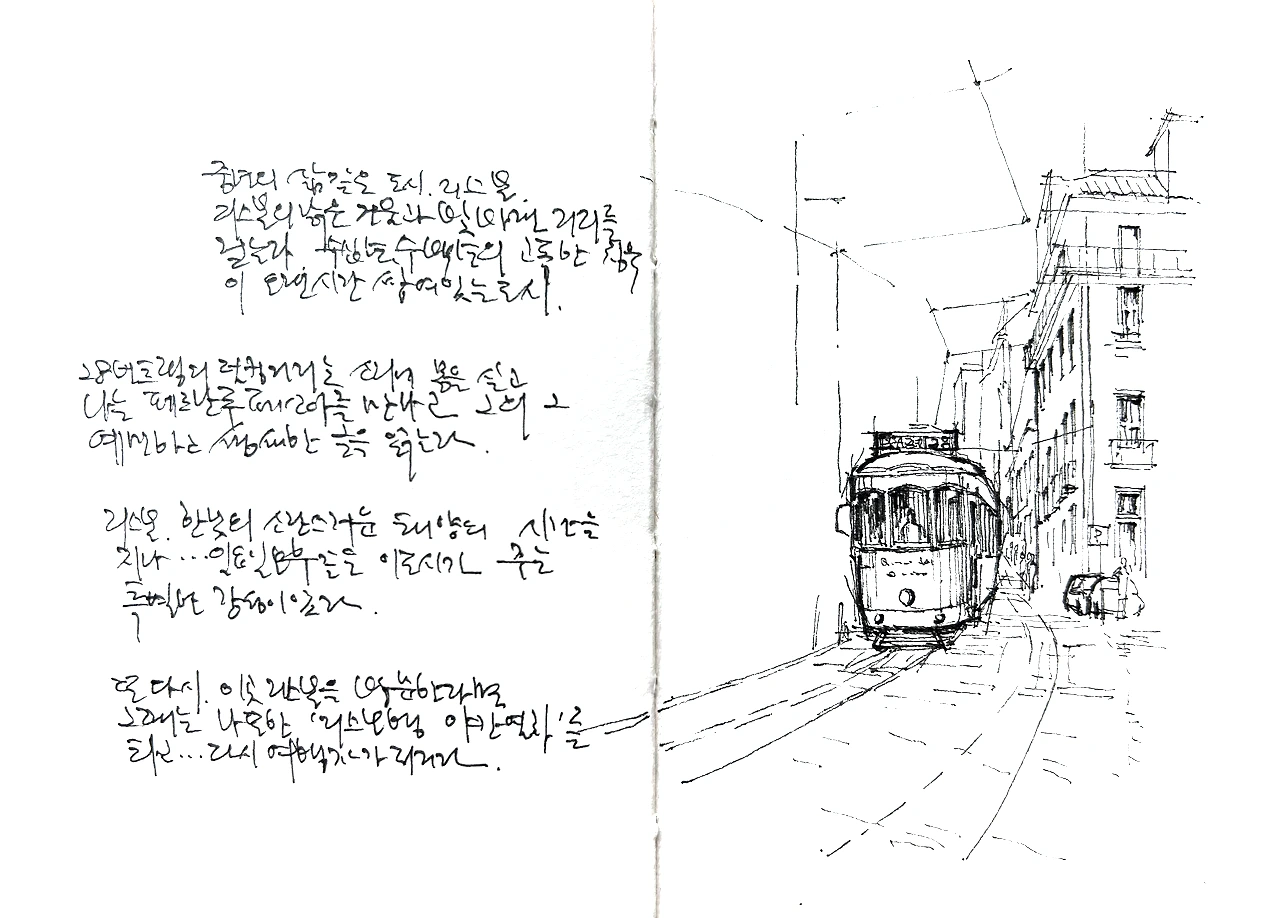 중년의 삶 같은 도시. 리스본.
리스본의 낡은 건물과 빛바랜 거리를
걷는다. 수십년, 수백년의 고독한 침묵
이 오랜시간 쌓여있는 도시.
28번 트램의 덜컹거리는 소리에 몸을 싣고
나는 페르난두 페소아를 만나고 그의 그
예민하고 섬세한 글을 읽는다.
리스본. 한낮의 소란스러운 태양의 시간을
지나... 일요일 오후 이 도시가 주는
특별한 감성이 있으리라.
또 다시. 이곳 리스본을 방문한다면
그때는 나 또한 '리스본행 야간열차'를
타고... 다시 여행자가 되리라.
BAZA 28